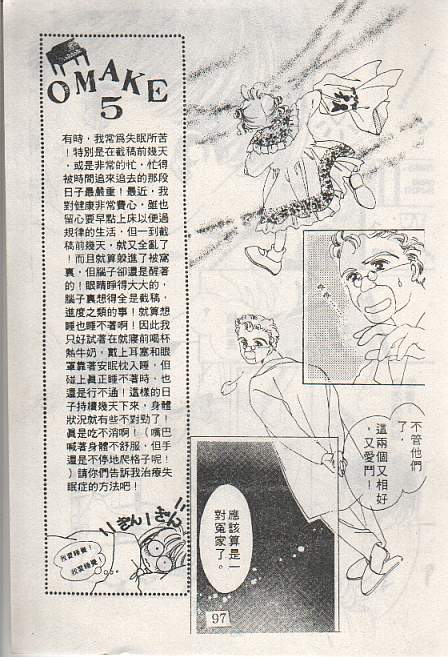 OMAKE
5
有時，我常為失眠所苦
！特別是在截稿前幾天
，或是非常的忙，忙得
被時間追來追去的那段
日子最嚴重！最近，我
對健康非常費心，雖也
留心要早點上床以便過
規律的生活，但一到截
稿前幾天，就又全亂了
！而且就算躲進了被窩
裏，但腦子卻還是醒著
的！眼睛睜得大大的，
腦子裏想得全是截稿，
進度之類的事！就算想
睡也睡不著啊！因此我
只好試著在就寢前喝杯
熱牛奶，戴上耳塞和眼
罩靠著安眠枕入睡，但
碰上眞正睡不著時，也
還是行不通！這樣的日
子持續幾天下來，身體
狀況就有些不對勁了！
眞是吃不消啊！（嘴巴
喊著身體不舒服，但手
還是不停地爬格子呢！
）請你們告訴我治療失
眠症的方法吧！
我要睡覺！
我要睡覺！
不管他們
了，
這兩個又相好
，又愛鬥！
應該算是一
對冤家了。
97